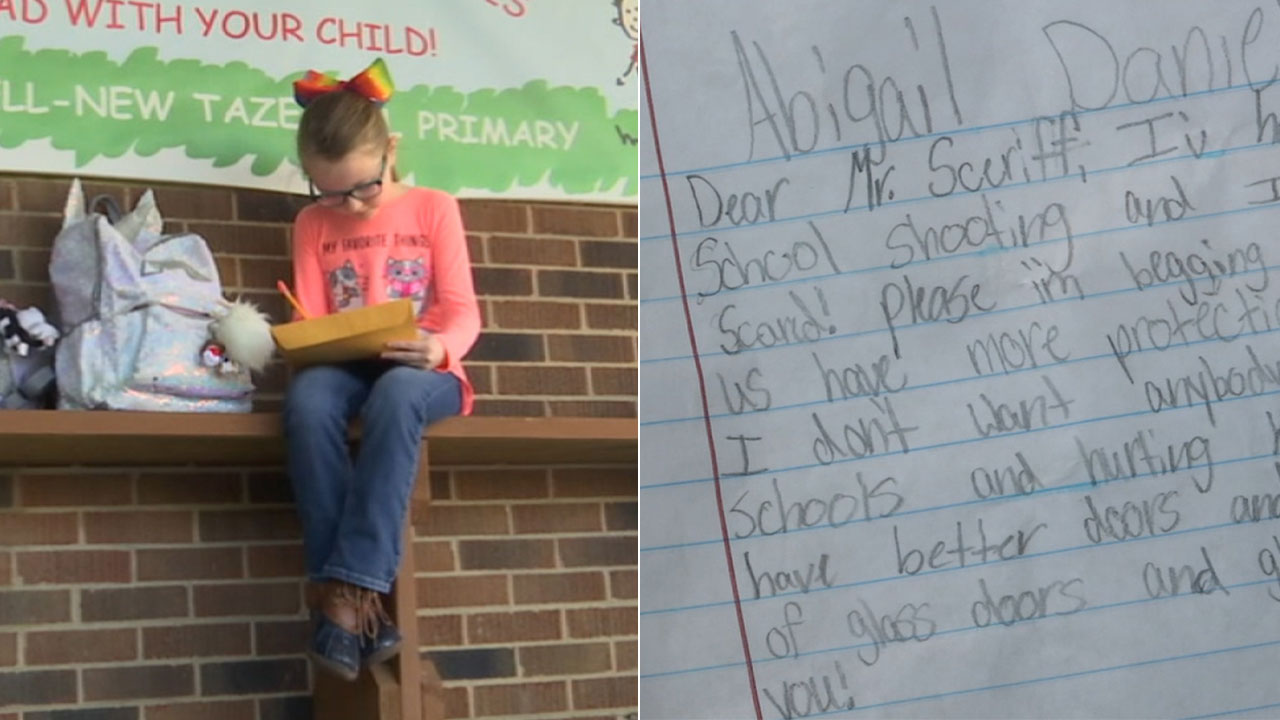 AD WITH YOUR CHILD!
LL-NEW TAZE PRIMARY
MY FAVORITE THINGS
Abigail Danie
Dear Mr. Sceriff, I'v h
School shooting and I
Scard! please i'm begging
us have more protecti
I don't want anybody
schools and hurting
have better doors and
of glass doors and gl
you!